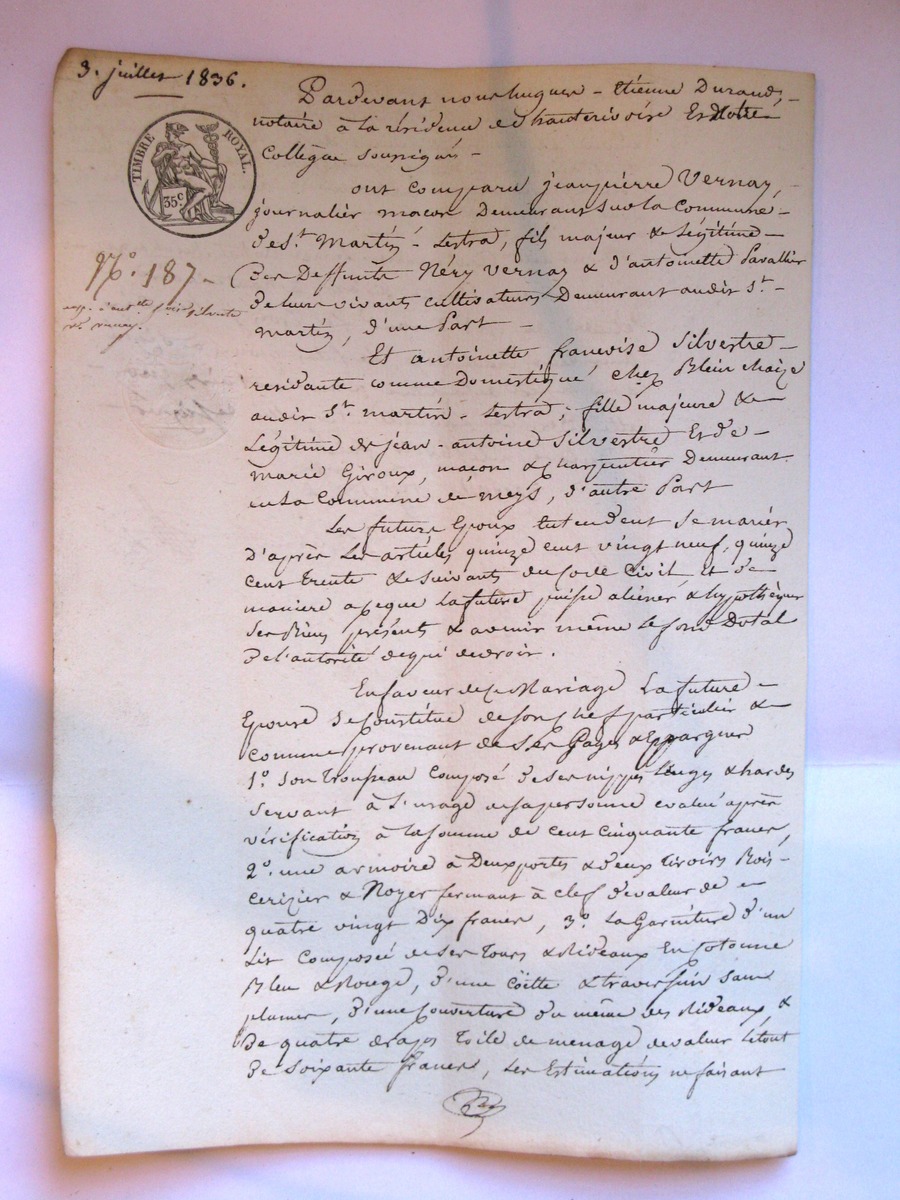 3. juillet 1836.
TIMBRE ROYAL.
35c
N.° 187
Pardevant nous hugues - Etienne Durand,
notaire à la résidence de hauterivoire et notre
Collègue soussignés -
ont comparu jeanpierre Vernay,
journalier maçon Demeurant sur la Commune
de St. Martin - Lestra, fils majeur & Légitime
des Deffunts Néry Vernay & d'antoinette Pavallier
de leur vivants cultivateurs Demeurant audit St.
martin, d'une Part -
Et antoinette françoise Silvestre
residante comme Domestique chez Blein
audit St. martin - Lestra, fille majeure &
Légitime de jean - antoine Silvestre et de
marie Giroux, maçon & Charpentier Demeurant
en la Commune de meys, d'autre Part
Les futurs Epoux entendent se marier
D'après Les articles quinze cent vingt neuf, quinze
cent trente & suivants du Code Civil et de
manière a ce que La future puisse aliéner & hypothéquer
ses Biens présents & avenir même Le fond Dotal
de l'autorité de qui de droit.
En faveur de ce Mariage La future
Epouse se Constitue de son chef particulier &
comme provenant de ses Gages & Epargnes
1.° Son Trousseau Composé de ses nippes Linges & hardes
servant à L'usage de sa personne evalué après
vérification à la somme de cent cinquante francs,
2.° une armoire à Deux portes & deux tiroirs Bois
Cerizier & Noyer fermant à clef de valeur de
quatre vingt Dix francs, 3.° La Garniture d'un
Lit Composée de ses tours & Rideaux En Cotonne
Bleu & Rouge, d'une Coëtte & traversin sans
plumes, d'une Couverture du même des Rideaux &
De quatre draps Toile de menage de valeur Le tout
De soixante francs, Les Estimations ne faisant